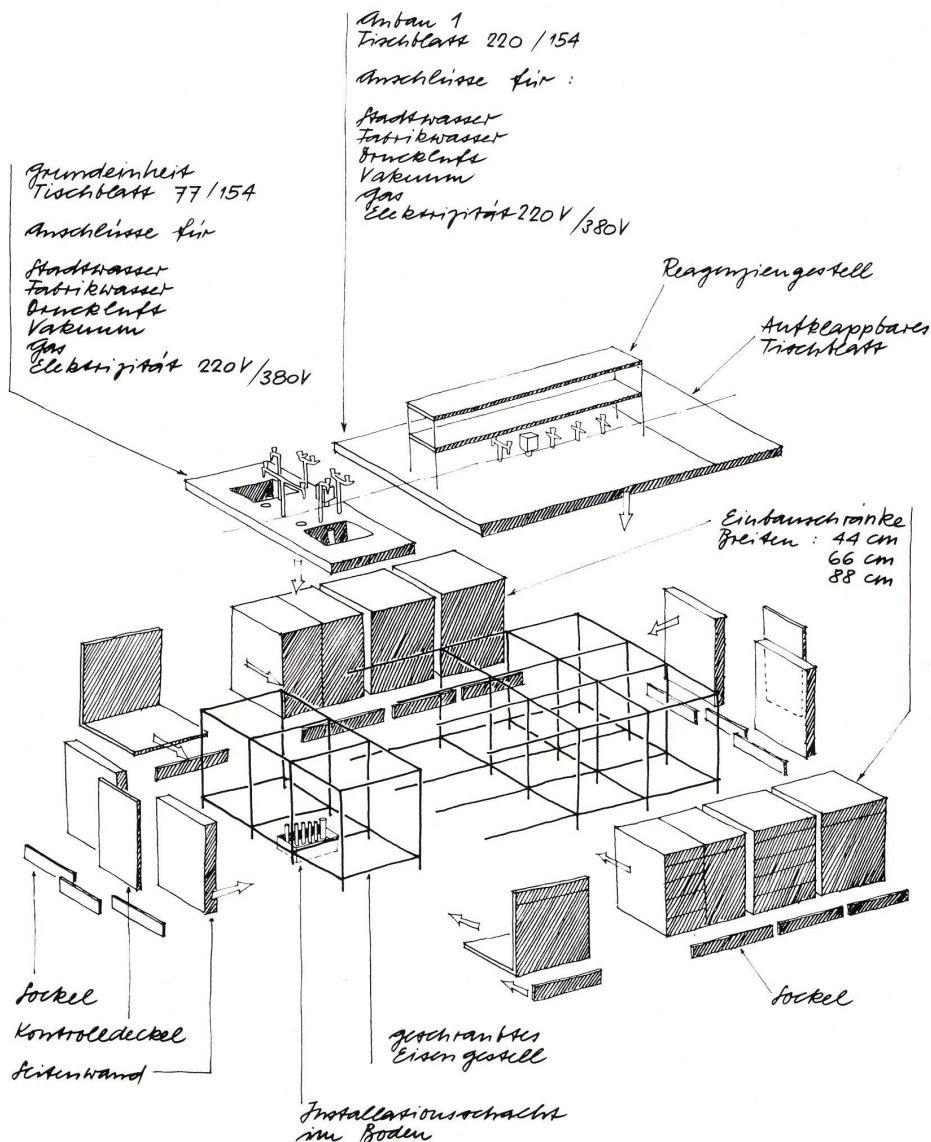 Anbau 1
Tischblatt 220/154
Anschlüsse für :
Stadtwasser
Fabrikwasser
Druckluft
Vakuum
Gas
Elektrizität 220V/380V
Grundeinheit
Tischblatt 77/154
Anschlüsse für
Stadtwasser
Fabrikwasser
Druckluft
Vakuum
Gas
Elektrizität 220V/380V
Reagenziengestell
Aufklappbares
Tischblatt
Einbauschränke
Breiten : 44 cm
66 cm
88 cm
Sockel
Kontrolldeckel
Seitenwand
geschraubtes
Eisengestell
Installationsschacht
im Boden
Sockel